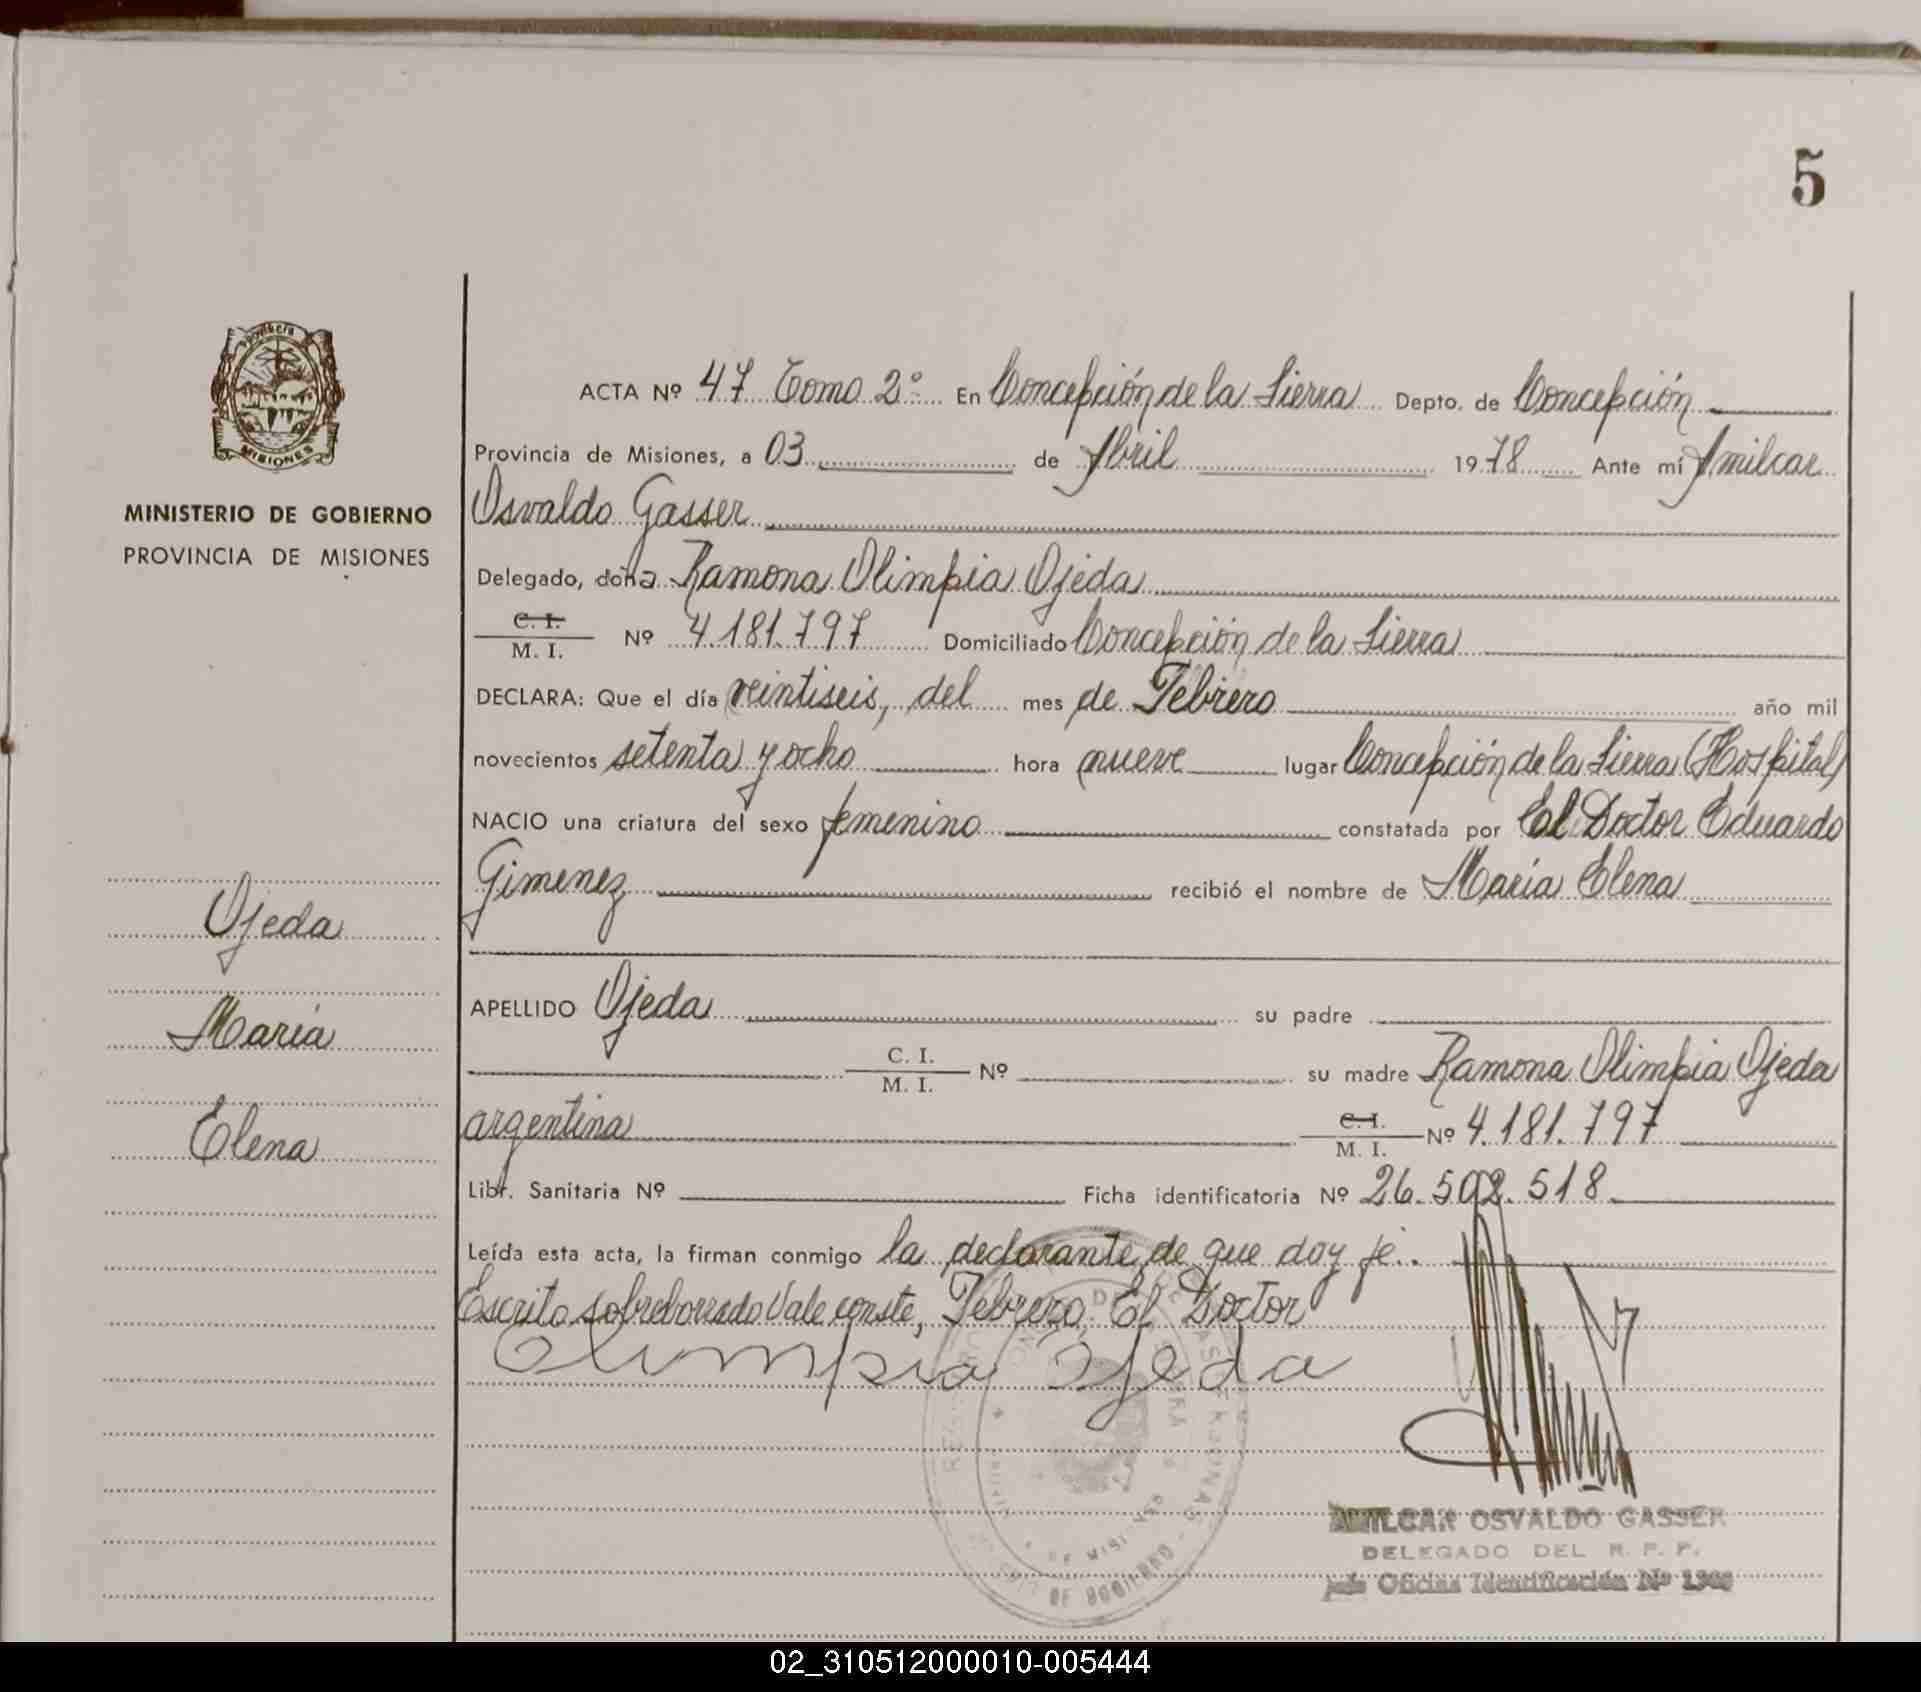 5
PROVINCIA
MISIONES
MINISTERIO DE GOBIERNO
PROVINCIA DE MISIONES
Ojeda
María
Elena
ACTA Nº 47 Tomo 2º En Concepción de la Sierra Depto. de Concepción
Provincia de Misiones, a 03 de Abril 1978 Ante mí Amilcar
Osvaldo Gasser
Delegado, doña Ramona Olimpia Ojeda
C. I.
M. I. Nº 4.181.797 Domiciliado Concepción de la Sierra
DECLARA: Que el día veintiseis, del mes de Febrero año mil
novecientos setenta y ocho hora nueve lugar Concepción de la Sierra (Hospital)
NACIO una criatura del sexo femenino constatada por El Doctor Eduardo
Gimenez recibió el nombre de María Elena
APELLIDO Ojeda su padre
C. I.
M. I. Nº su madre Ramona Olimpia Ojeda
argentina C. I.
M. I. Nº 4.181.797
Libr. Sanitaria Nº Ficha identificatoria Nº 26.502.518
Leída esta acta, la firman conmigo la declarante de que doy fe..
Escrito sobreborrado Vale conste, Febrero, El Doctor
Olimpia Ojeda
AMILCAR OSVALDO GASSER
DELEGADO DEL R. P. P.
Jefe Oficina Identificación Nº
02_310512000010-005444